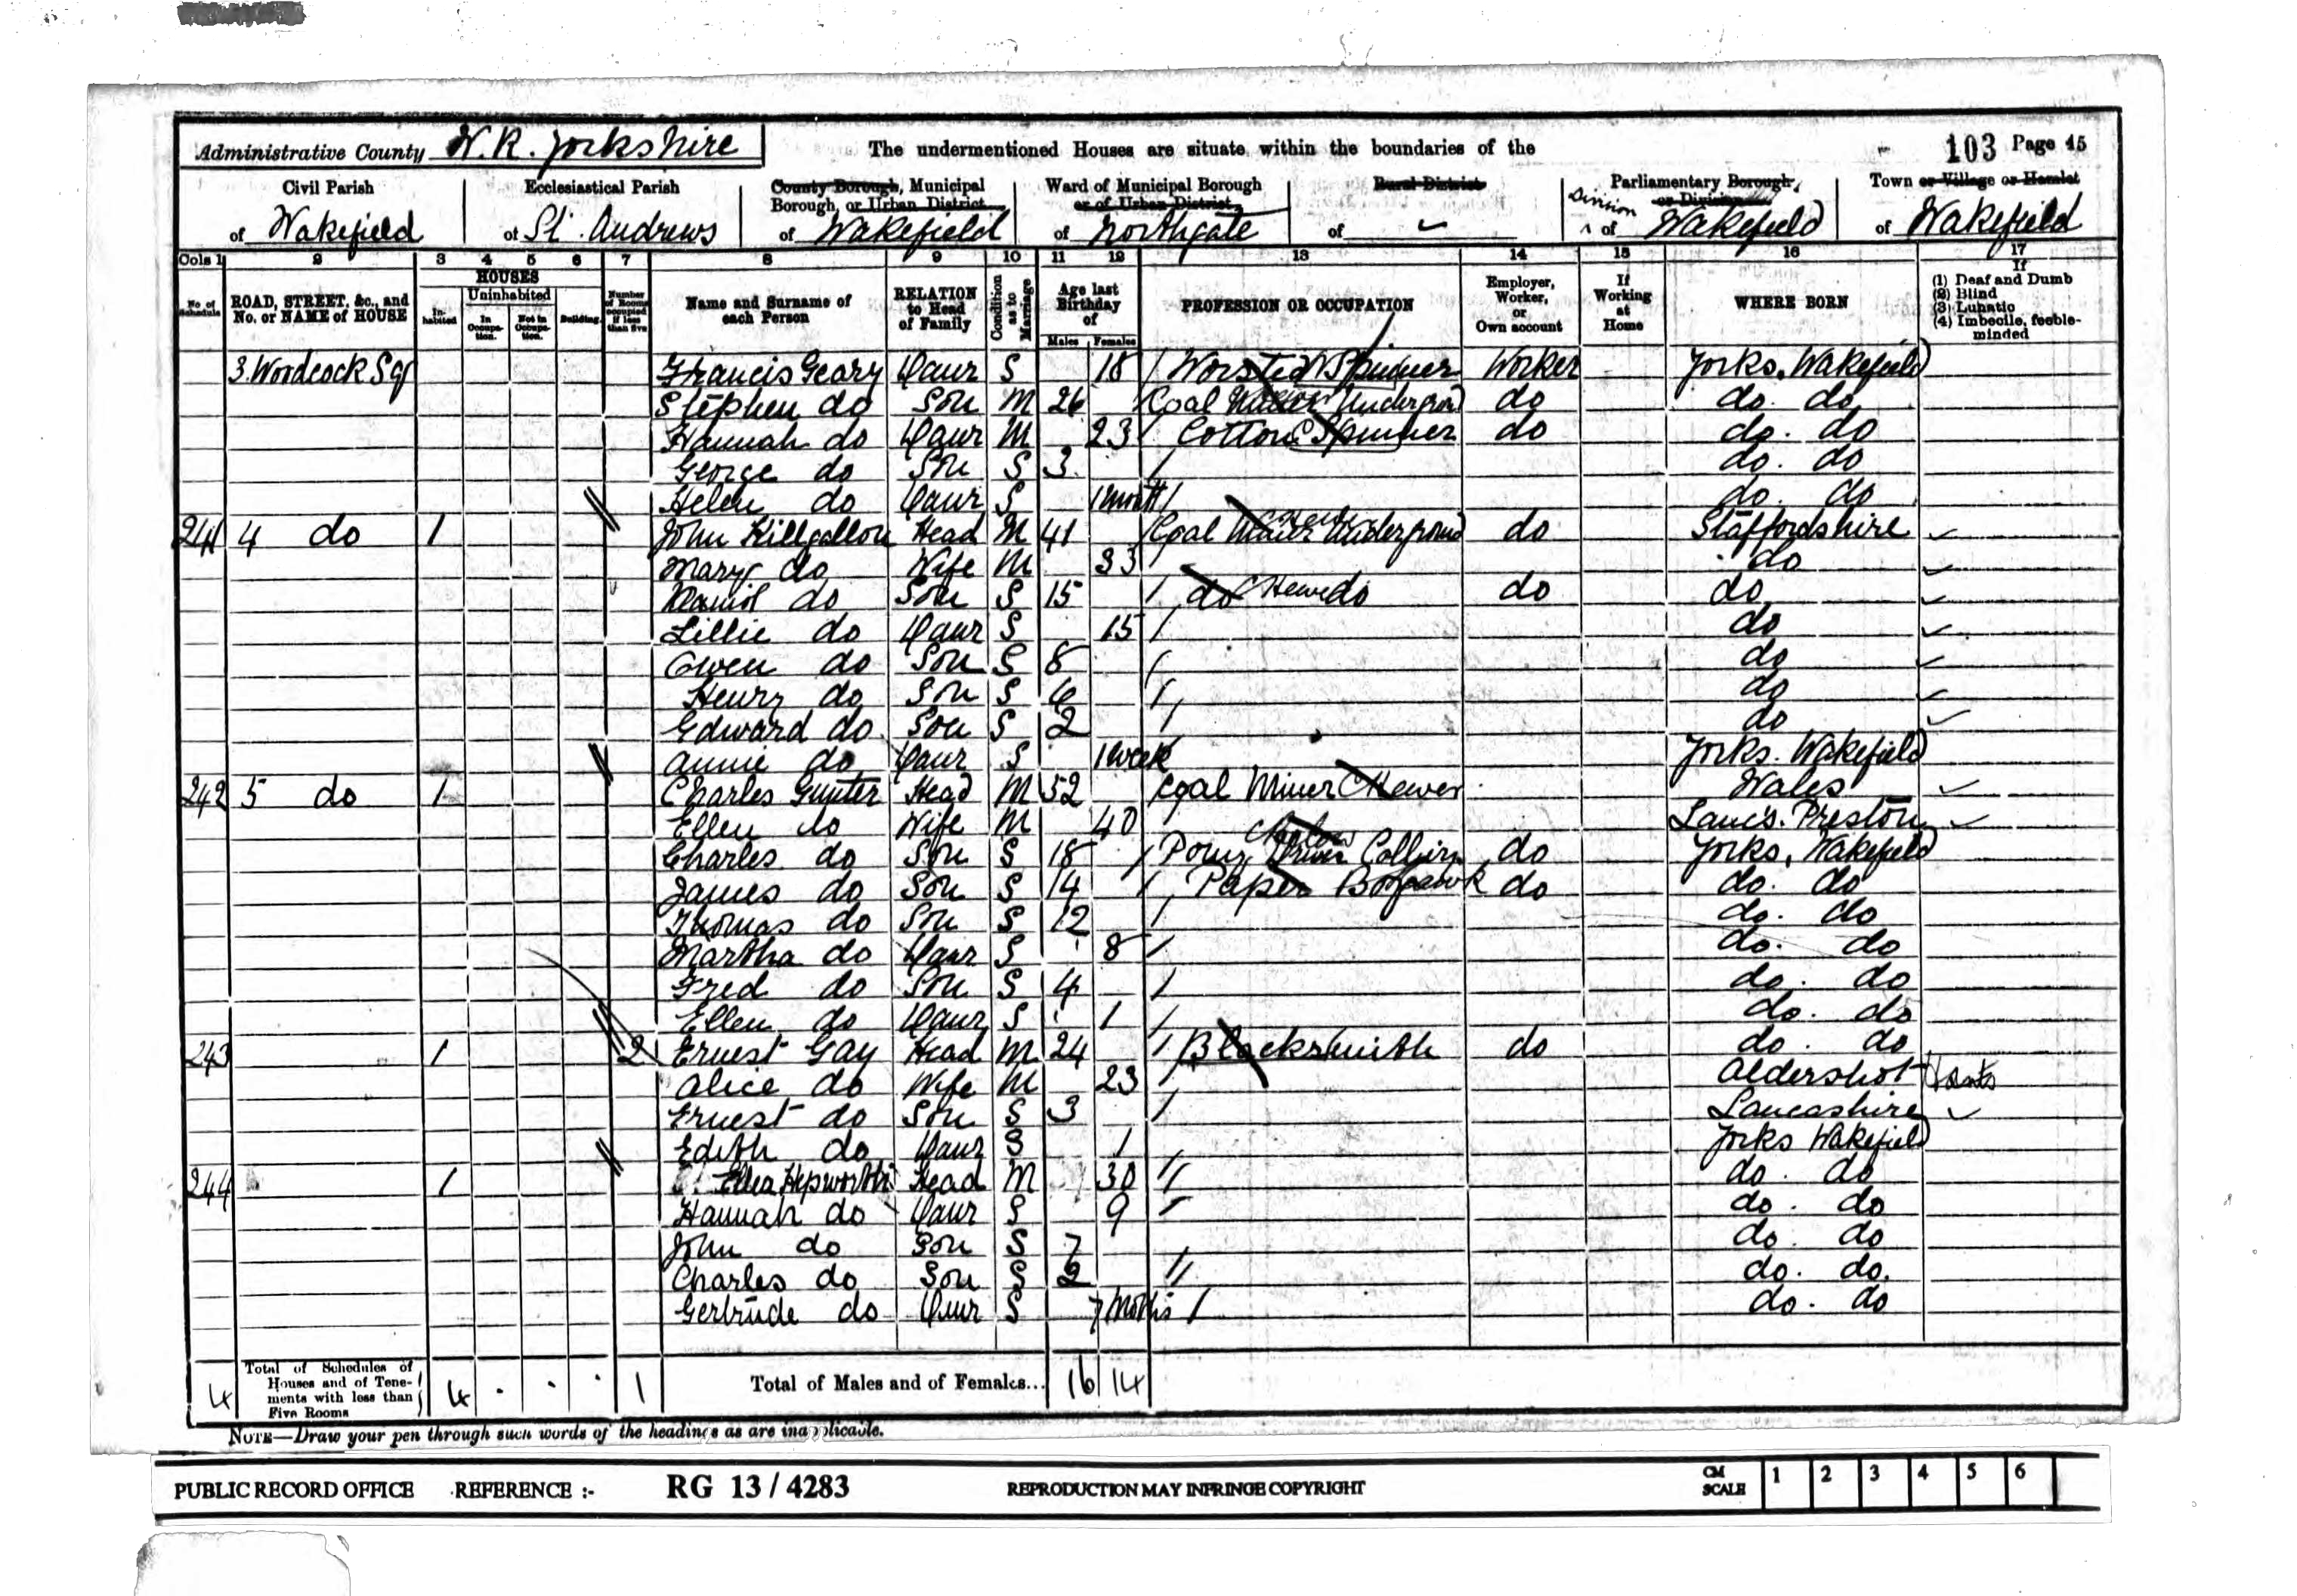 Administrative County W. R. Yorkshire
The undermentioned Houses are situate within the boundaries of the
103 Page 15
Civil Parish of Wakefield
Ecclesiastical Parish of St. Andrews
County Borough, Municipal Borough, or Urban District of Wakefield
Ward of Municipal Borough or of Urban District of Northgate
Rural District of
Parliamentary Borough, or Division Division of Wakefield
Town or Village or Hamlet of Wakefield
Cols 1 2 3 4 5 6 7 8 9 10 11 12 13 14 15 16 17
No. of Schedule
ROAD, STREET, &c., and No. or NAME of HOUSE
HOUSES
Inhabited
Uninhabited
In Occupation.
Not in Occupation.
Building.
Number of Rooms occupied if less than five
Name and Surname of each Person
RELATION to Head of Family
Condition as to Marriage
Age last Birthday of
Males Females
PROFESSION OR OCCUPATION
Employer, Worker, or Own account
If Working at Home
WHERE BORN
If
(1) Deaf and Dumb
(2) Blind
(3) Lunatic
(4) Imbecile, feeble-minded
3. Woodcock Sq Francis Geary Daur S 18 Worsted Spinner Worker Yorks, Wakefield
Stephen do Son M 26 Coal Underground do do. do
Hannah do Daur M 23 Cotton Spinner do do. do
George do Son S 3 do. do
Helen do Daur S 1 month do. do
241 4 do 1 John Killgallon Head M 41 Coal Hewer Underground do Staffordshire
Mary do Wife M 33 do
Daniel do Son S 15 do Hewer do do do
Lillie do Daur S 15 do
Owen do Son S 8 do
Henry do Son S 6 do
Edward do Son S 2 do
Annie do Daur S 1 week Yorks. Wakefield
242 5 do 1 Charles Gunter Head M 52 Coal Miner Hewer Wales
Ellen do Wife M 40 Lancs. Preston
Charles do Son S 18 Pony Driver Colliery do Yorks, Wakefield
James do Son S 14 Paper do do. do
Thomas do Son S 12 do. do
Martha do Daur S 8 do. do
Fred do Son S 4 do. do
Ellen do Daur S 1 do. do
243 1 2 Ernest Gay Head M 24 Blacksmith do do. do
Alice do Wife M 23 Aldershot Hants
Ernest do Son S 3 Lancashire
Edith do Daur S 1 Yorks Wakefield
244 1 Ellen Hepworth Head M 30 do. do
Hannah do Daur S 9 do. do
John do Son S 7 do. do
Charles do Son S 2 do. do.
Gertrude do Daur S 7 Moths do. do
4 Total of Schedules of Houses and of Tenements with less than Five Rooms 4 . . . 1 Total of Males and of Females... 16 14
NOTE—Draw your pen through such words of the headings as are inapplicable.
PUBLIC RECORD OFFICE REFERENCE :- RG 13 / 4283 REPRODUCTION MAY INFRINGE COPYRIGHT CM SCALE 1 2 3 4 5 6